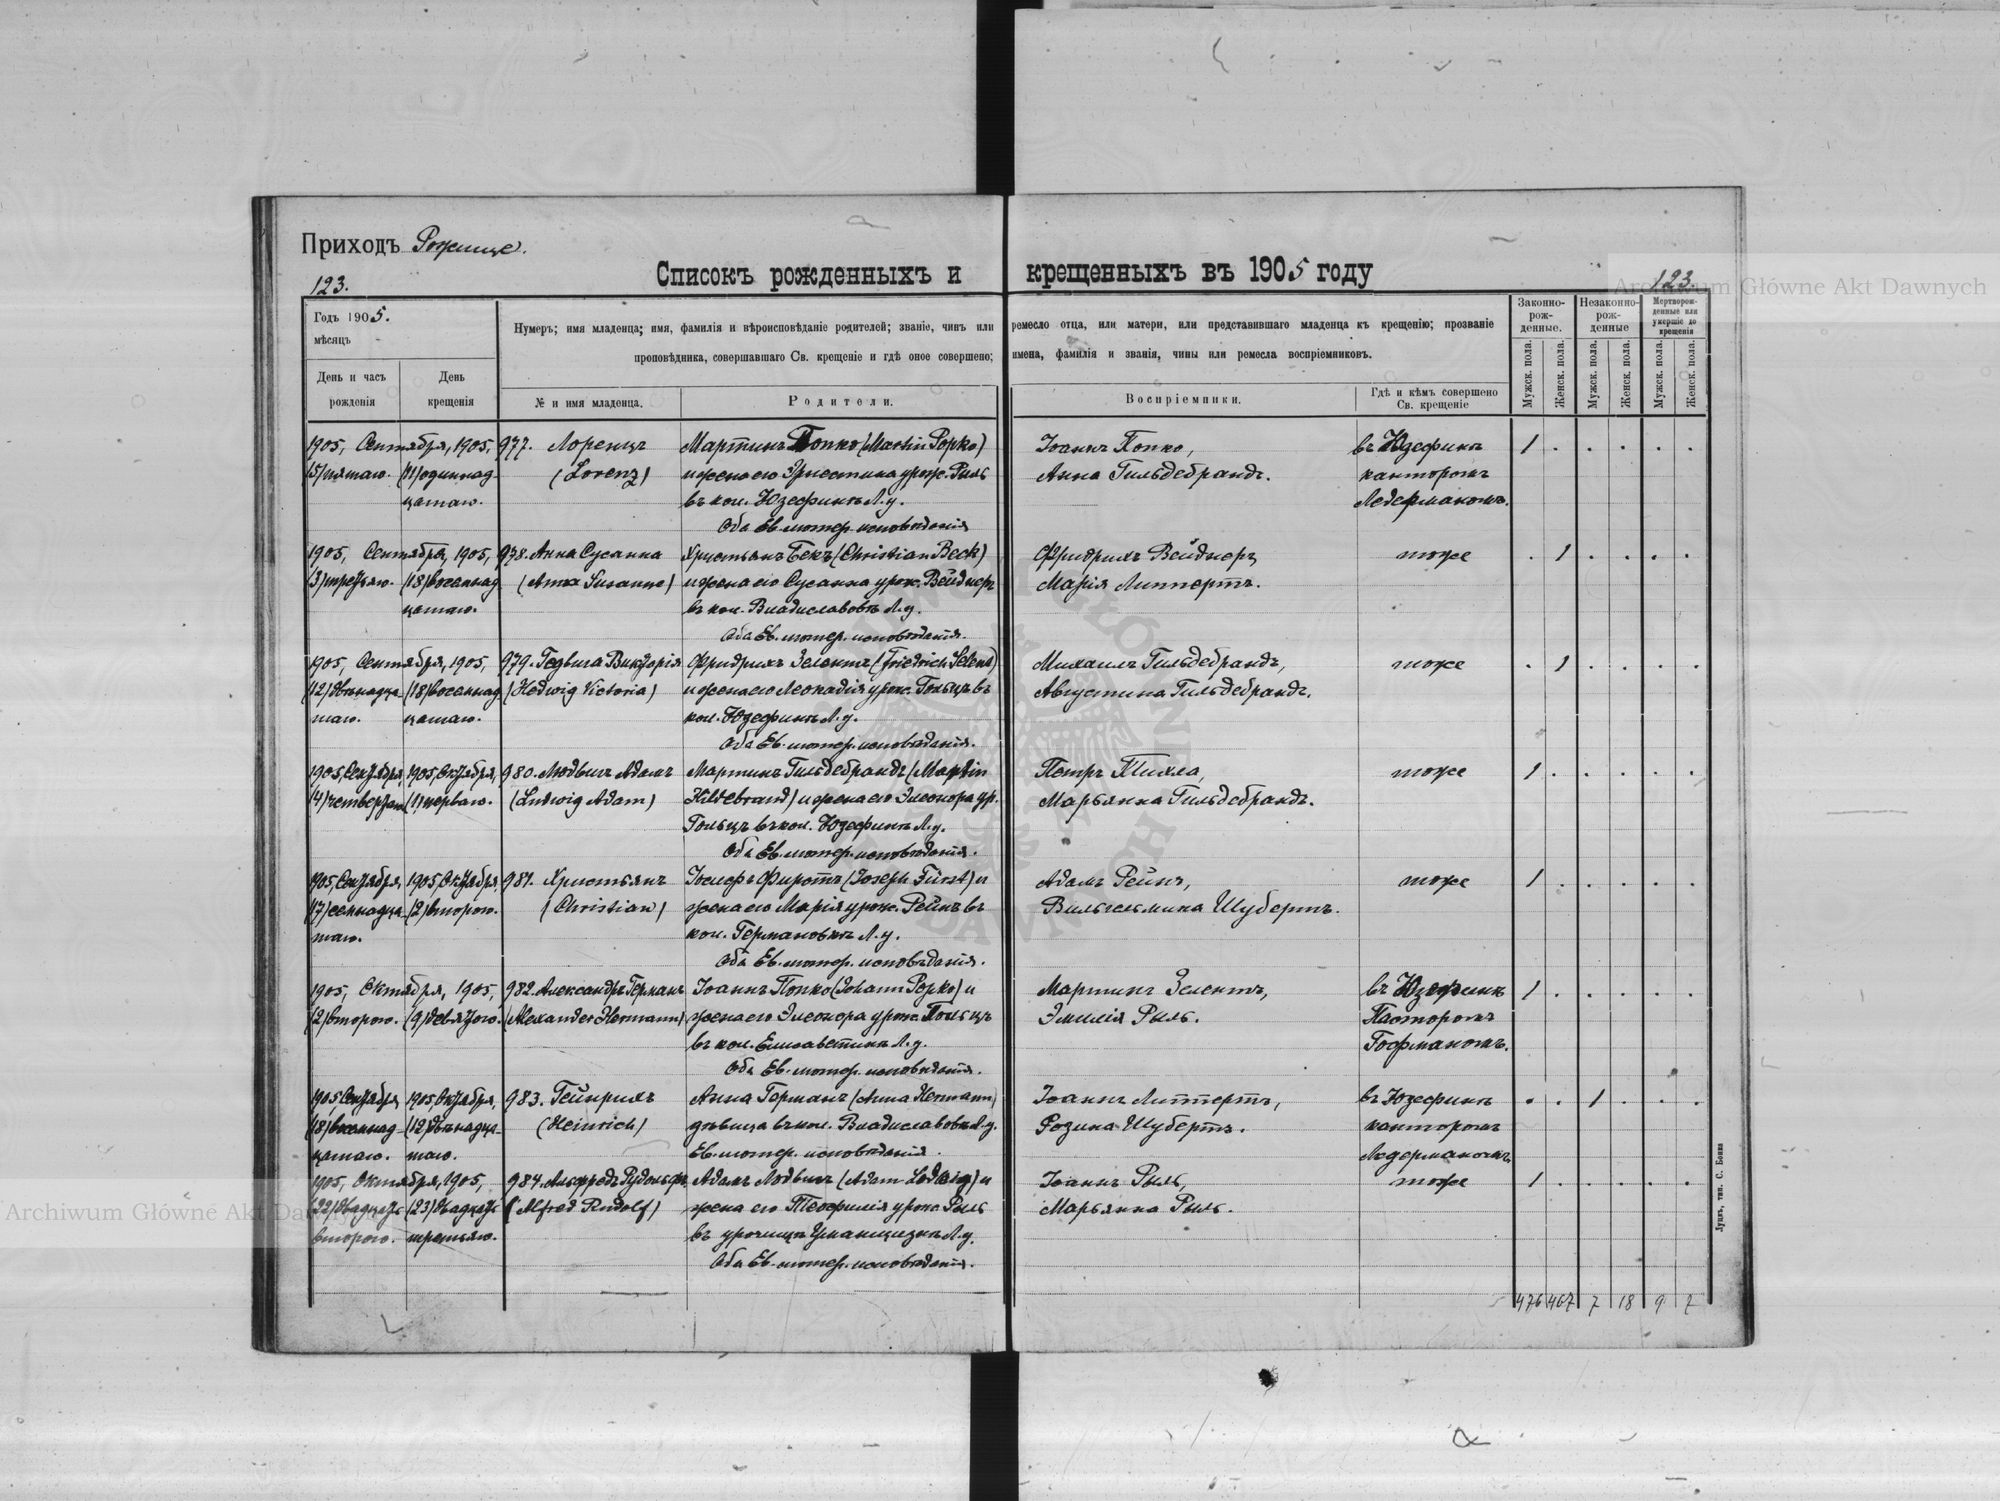 Приходъ Рожище.
123.
Списокъ рожденныхъ и крещенныхъ въ 1905 году
123.
Archiwum Główne Akt Dawnych
Годъ 1905.
мѣсяцъ
День и часъ рожденія
День крещенія
Нумеръ; имя младенца; имя, фамилія и вѣроисповѣданіе родителей; званіе, чинъ или ремесло отца, или матери, или представившаго младенца къ крещенію; прозваніе
проповѣдника, совершавшаго Св. крещеніе и гдѣ оное совершено; имена, фамилія и званія, чины или ремесла воспріемниковъ.
№ и имя младенца.
Родители.
Воспріемники.
Гдѣ и кѣмъ совершено Св. крещеніе
Законно-рож-денные.
Незаконно-рож-денные
Мертворож-денные или умершіе до крещенія
Мужск. пола.
Женск. пола.
Мужск. пола.
Женск. пола.
Мужск. пола.
Женск. пола.
1905, Сентября, 1905, 977. Лоренцъ Мартинъ Попко (Martin Popko) Іоаннъ Попко, въ Юзефинѣ 1 . . . . .
(5) пятаго. (11) одиннад- (Lorenz) и жена его Эрнестина урож. Рыль Анна Гильдебрандъ. канторомъ
цатаго. въ кол. Юзефинѣ Л. у. Ледерманомъ.
Оба Ев. лютер. исповѣданія
1905, Сентября, 1905, 978. Анна Сусанна Христьянъ Бекъ (Christian Beck) Фридрихъ Вейднеръ, тоже . 1 . . . .
(3) третьяго. (18) восемнад- (Anna Susanne) и жена его Сусанна урож. Вейднеръ Марія Липпертъ.
цатаго. въ кол. Владиславовкѣ Л. у.
Оба Ев. лютер. исповѣданія.
1905, Сентября, 1905, 979. Гедвига Викторія Фридрихъ Зелентъ (Friedrich Selent) Михаилъ Гильдебрандъ, тоже . 1 . . . .
(12) двѣнадца- (18) восемнад- (Hedwig Victoria) и жена его Леокадія урож. Гольцъ въ Августина Гильдебрандъ.
таго. цатаго. кол. Юзефинѣ Л. у.
Оба Ев. лютер. исповѣданія.
1905, Сентября, 1905, Октября, 980. Людвигъ Адамъ Мартинъ Гильдебрандъ (Martin Петръ Тихла, тоже 1 . . . . .
(4) четвертаго (1) перваго. (Ludwig Adam) Hildebrand) и жена его Элеонора ур. Марьянна Гильдебрандъ.
Гольцъ въ кол. Юзефинѣ Л. у.
Оба Ев. лютер. исповѣданія.
1905, Сентября, 1905, Октября 981. Христьянъ Іосифъ Фирстъ (Joseph Fürst) и Адамъ Рейнъ, тоже 1 . . . . .
(17) семнадца- (2) второго. (Christian) жена его Марія урож. Рейнъ въ Вильгельмина Шубертъ.
таго. кол. Германовкѣ Л. у.
Оба Ев. лютер. исповѣданія.
1905, Октября, 1905, 982. Александръ Германъ Іоаннъ Попко (Johann Popko) и Мартинъ Зелентъ, въ Юзефинѣ 1 . . . . .
(2) второго. (9) девятого. (Alexander Hermann) жена его Элеонора урож. Гольцъ Эмилія Рыль. Пасторомъ
въ кол. Елисаветинѣ Л. у. Гофманомъ.
Оба Ев. лютер. исповѣданія.
1905, Сентября 1905, Октября, 983. Гейнрихъ Анна Германъ (Anna Hermann) Іоаннъ Липпертъ, въ Юзефинѣ . . 1 . . .
(18) восемнад- (12) двѣнадца- (Heinrich) дѣвица въ кол. Владиславовкѣ Л. у. Розина Шубертъ. канторомъ
цатаго. таго. Ев. лютер. исповѣданія. Ледерманомъ.
1905, Октября, 1905, 984. Альфредъ Рудольфъ Адамъ Лодвигъ (Adam Lodwig) и Іоаннъ Рыль, тоже 1 . . . . .
(22) двадцать (23) двадцать (Alfred Rudolf) жена его Теофилія урож. Рыль Марьянна Рыль.
второго. третьяго. въ урочищѣ Л. у.
Оба Ев. лютер. исповѣданія.
476 467 7 18 9 7
Луцкъ, тип. С. Бонка
Archiwum Główne Akt Dawnych